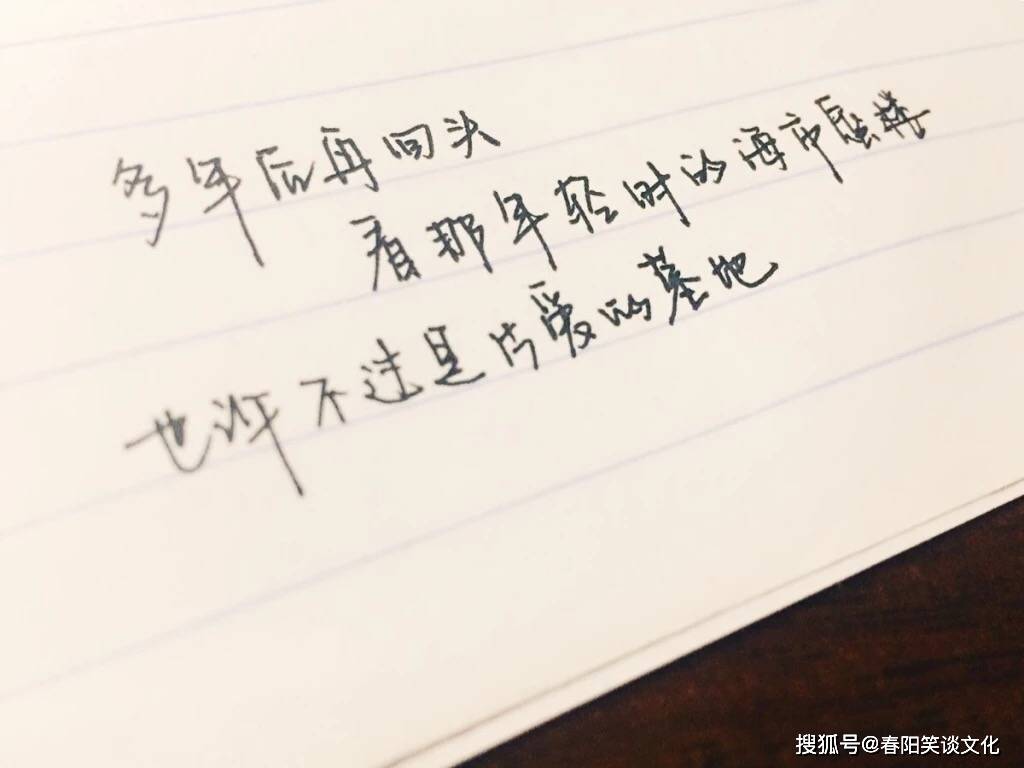 多年后再回头
看那年轻时的海市蜃楼
也许不过是片爱的墓地
搜狐号@春阳笑谈文化